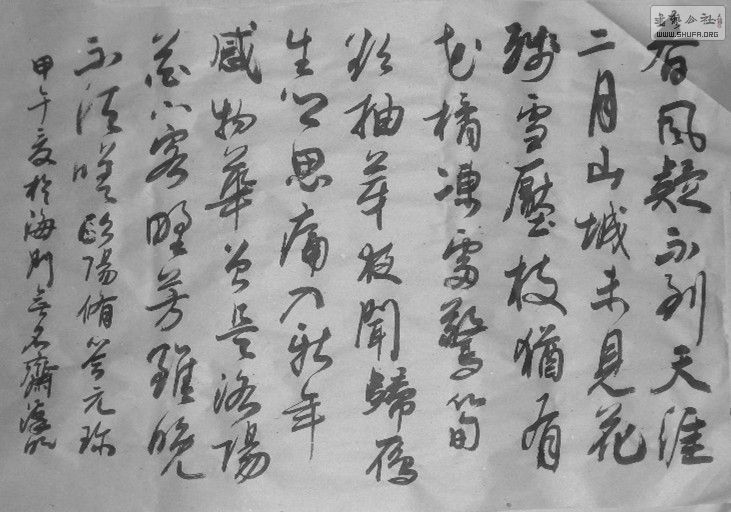 書藝公社
WWW.SHUFA.ORG
春風疑不到天涯
二月山城未見花
殘雪壓枝猶有
橘凍雷驚筍
欲抽芽夜聞歸雁
生鄉思病入新年
感物華曾是洛陽
花下客野芳雖晚
不須嗟歐陽脩答元珍
甲午夏於海門無名齋